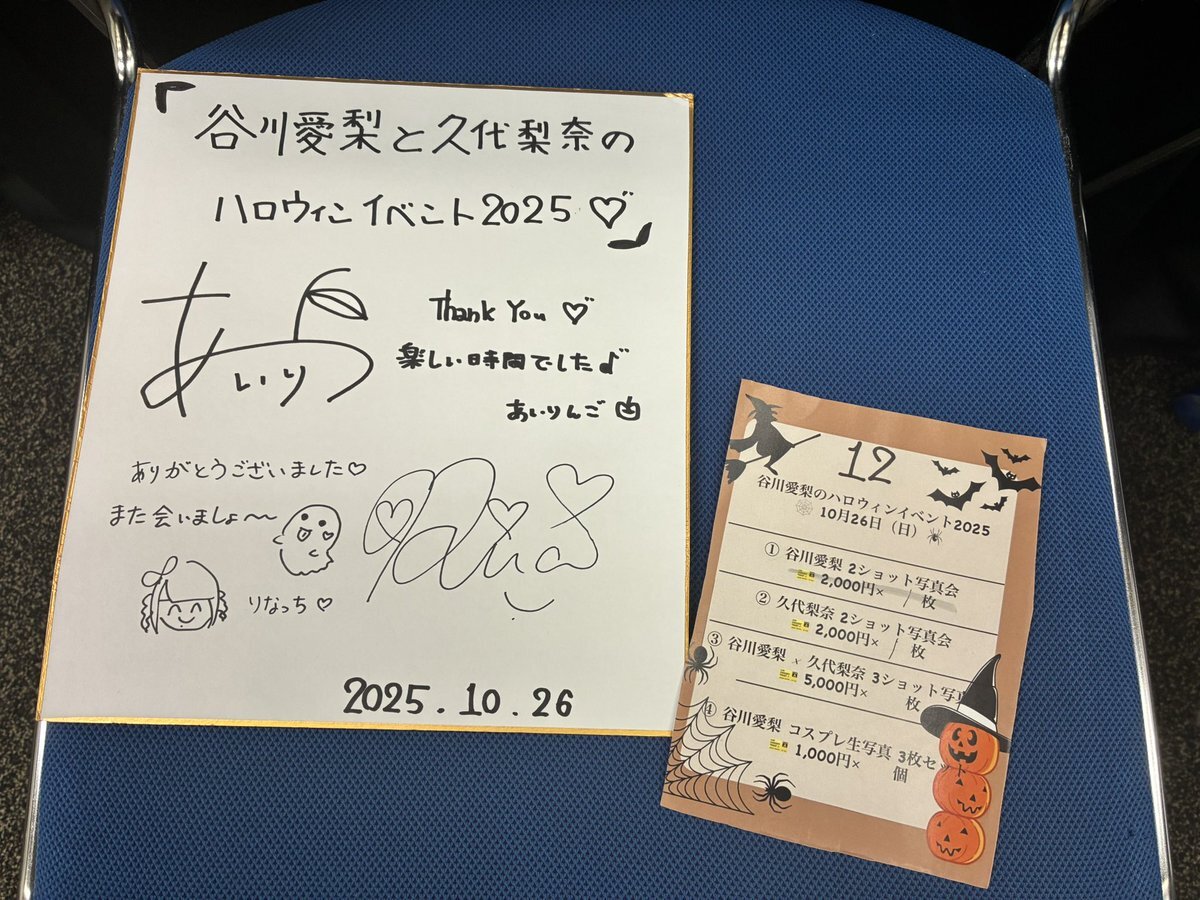 『谷川愛梨と久代梨奈の
ハロウィンイベント2025♡』
あいり
Thank You ♡
楽しい時間でした♪
あいりんご
ありがとうございました♡
また会いましょ〜〜
りなっち♡
Rina
2025.10.26
12
谷川愛梨のハロウィンイベント2025
10月26日（日）
① 谷川愛梨 2ショット写真会
2,000円× / 枚
② 久代梨奈 2ショット写真会
2,000円× / 枚
③ 谷川愛梨 × 久代梨奈 3ショット写真
5,000円× 枚
④ 谷川愛梨 コスプレ生写真 3枚セット
1,000円× 個